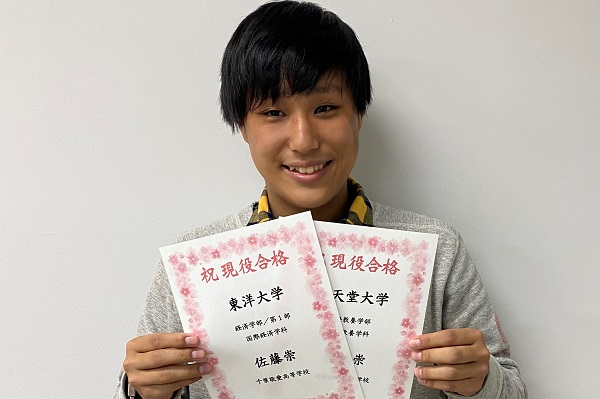 祝現役合格
東洋大学
経済学部/第1部
国際経済学科
佐藤崇
千葉敬愛高等学校
現役合格
天堂大学
教養学部
養学科
崇
学校